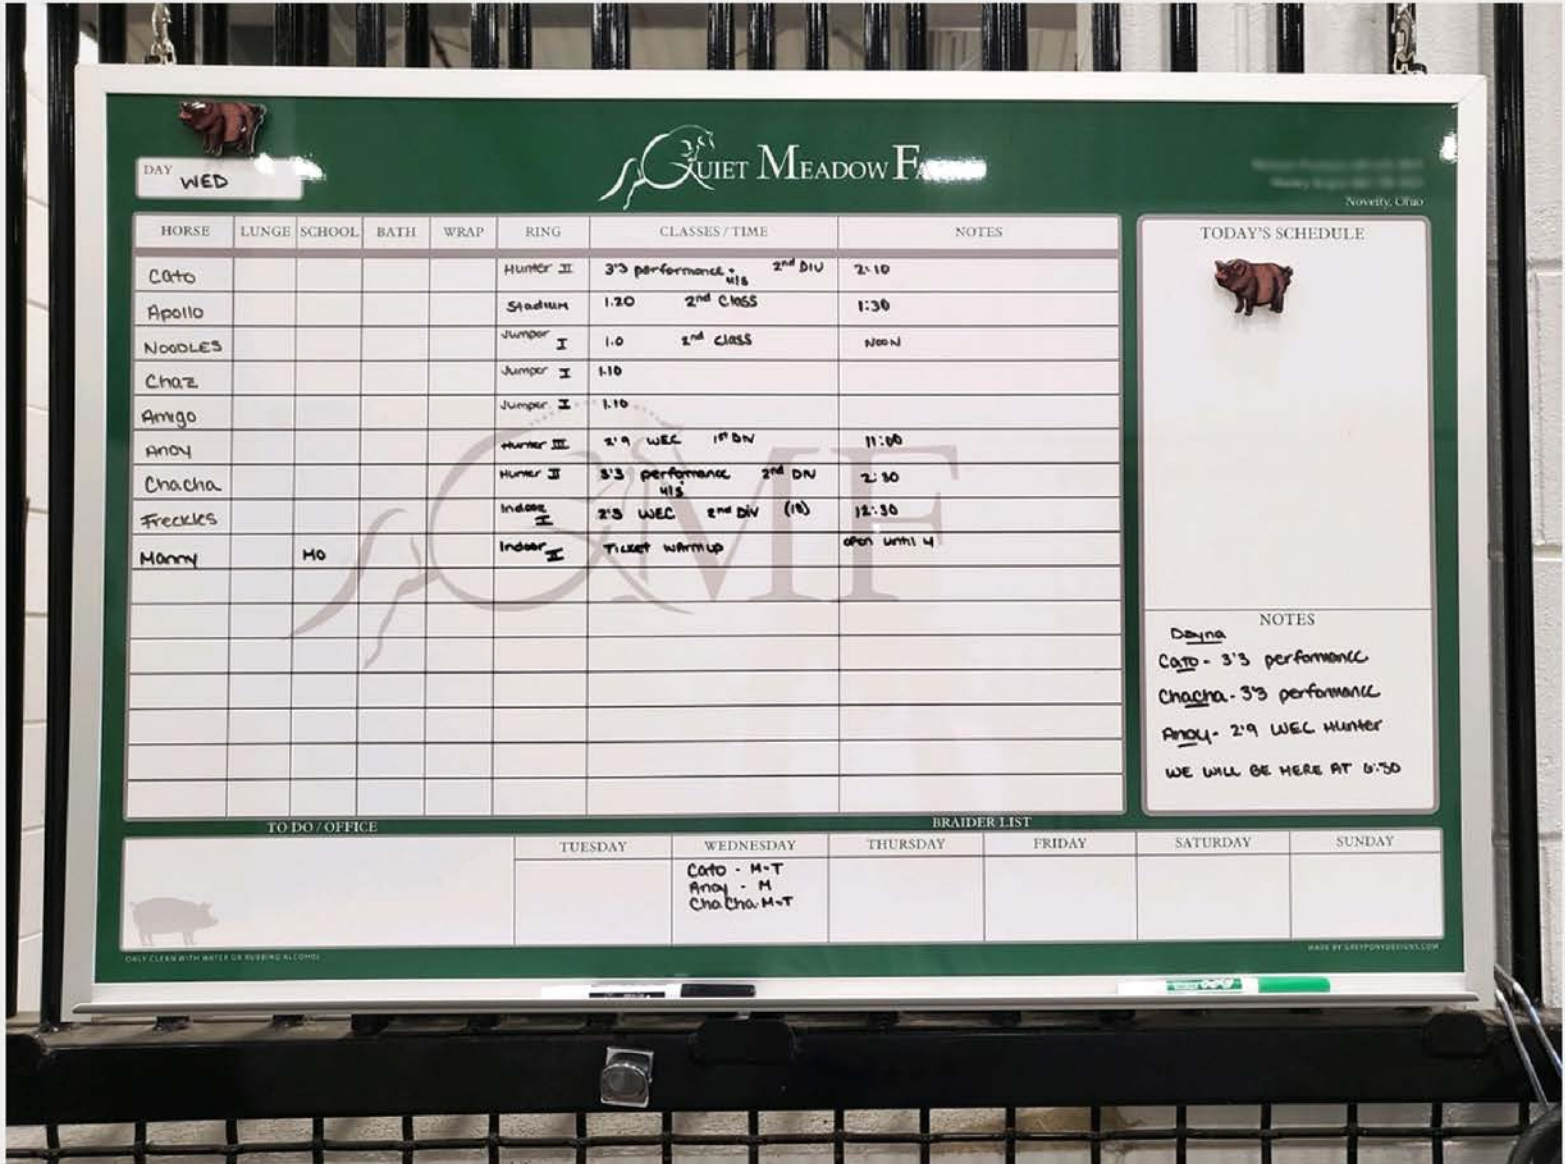 DAY
WED
QUIET MEADOW
Novelty, Ohio
HORSE LUNGE SCHOOL BATH WRAP RING CLASSES / TIME NOTES
Cato Hunter II 3'3 performance + u/s 2nd DIV 2:10
Apollo Stadium 1.20 2nd Class 1:30
NOODLES Jumper I 1.0 2nd class NOON
Chaz Jumper I 1.10
Amigo Jumper I 1.10
Andy Hunter III 2'9 WEC 1st DIV 11:00
Chacha Hunter II 3'3 performance u/s 2nd DIV 2:30
Freckles Indoor I 2'3 WEC 2nd DIV (18) 12:30
Manny MO Indoor II Ticket warmup open until 4
QMF
TODAY'S SCHEDULE
NOTES
Dayna
Cato - 3'3 performance
Chacha - 3'3 performance
Andy - 2'9 WEC Hunter
WE WILL BE HERE AT 6:30
TO DO / OFFICE
BRAIDER LIST
TUESDAY WEDNESDAY THURSDAY FRIDAY SATURDAY SUNDAY
Cato - M+T
Andy - M
ChaCha - M+T
ONLY CLEAN WITH WATER OR RUBBING ALCOHOL
MADE BY GREYPONYDESIGNS.COM